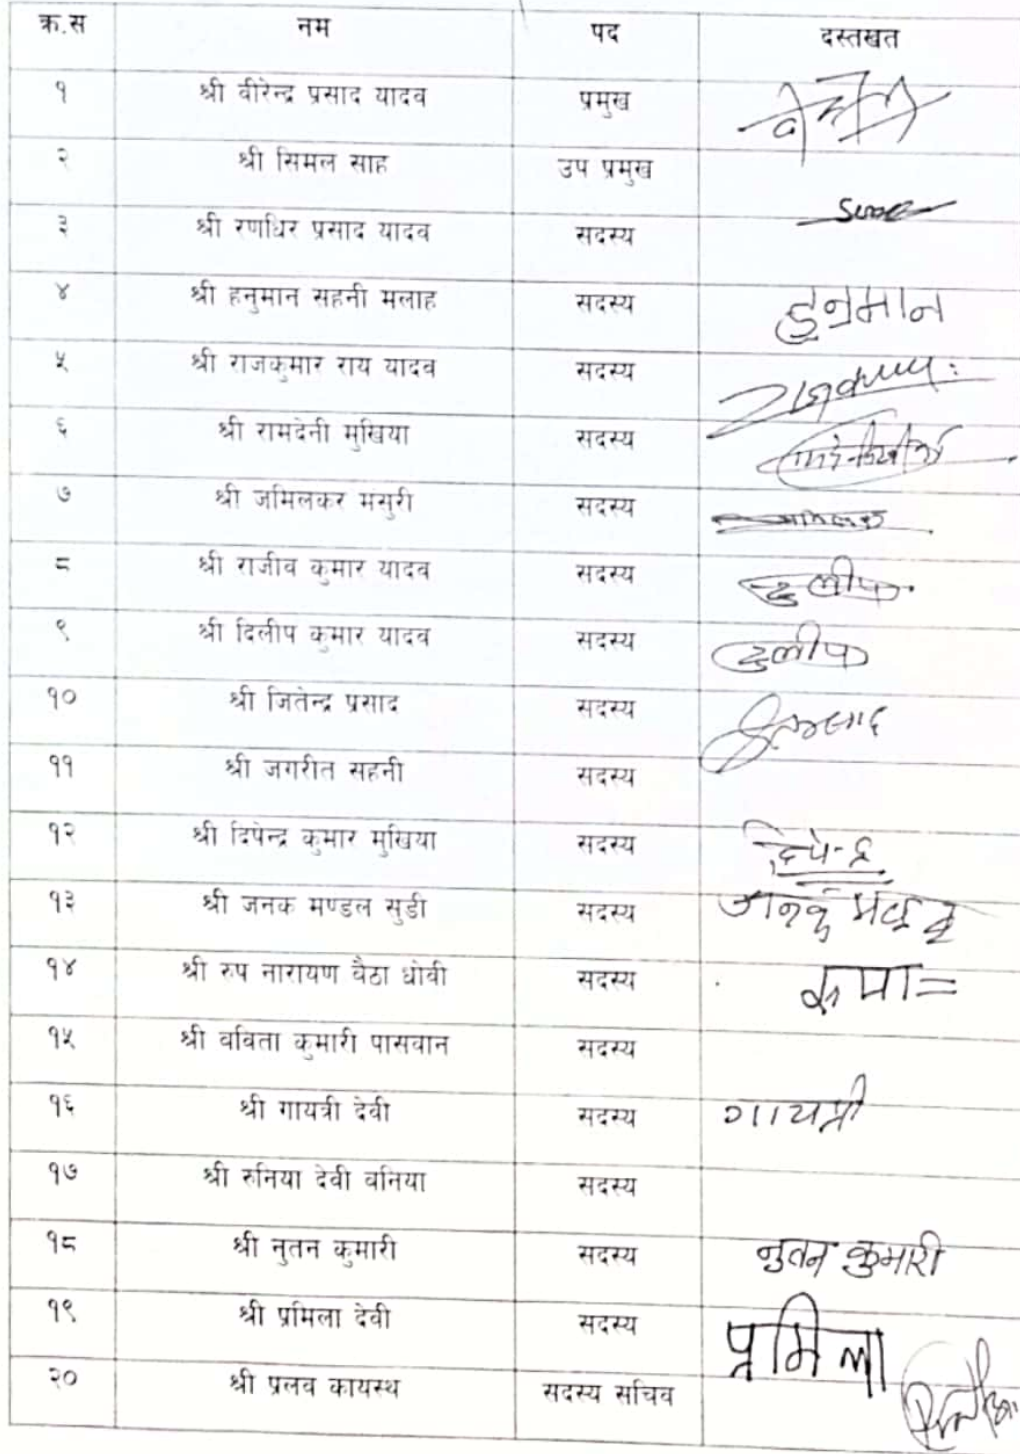 क्र.स नम पद दस्तखत
१ श्री वीरेन्द्र प्रसाद यादव प्रमुख
२ श्री सिमल साह उप प्रमुख
३ श्री रणधिर प्रसाद यादव सदस्य
४ श्री हनुमान सहनी मलाह सदस्य हनुमान
५ श्री राजकुमार राय यादव सदस्य
६ श्री रामदेनी मुखिया सदस्य
७ श्री जमिलकर मसुरी सदस्य
८ श्री राजीव कुमार यादव सदस्य
९ श्री दिलीप कुमार यादव सदस्य
१० श्री जितेन्द्र प्रसाद सदस्य
११ श्री जगरीत सहनी सदस्य
१२ श्री दिपेन्द्र कुमार मुखिया सदस्य दिपेन्द्र
१३ श्री जनक मण्डल सुडी सदस्य
१४ श्री रुप नारायण वैठा धोवी सदस्य
१५ श्री वविता कुमारी पासवान सदस्य
१६ श्री गायत्री देवी सदस्य गायत्री
१७ श्री रुनिया देवी वनिया सदस्य
१८ श्री नुतन कुमारी सदस्य नुतन कुमारी
१९ श्री प्रमिला देवी सदस्य प्रमिला
२० श्री प्रलव कायस्थ सदस्य सचिव